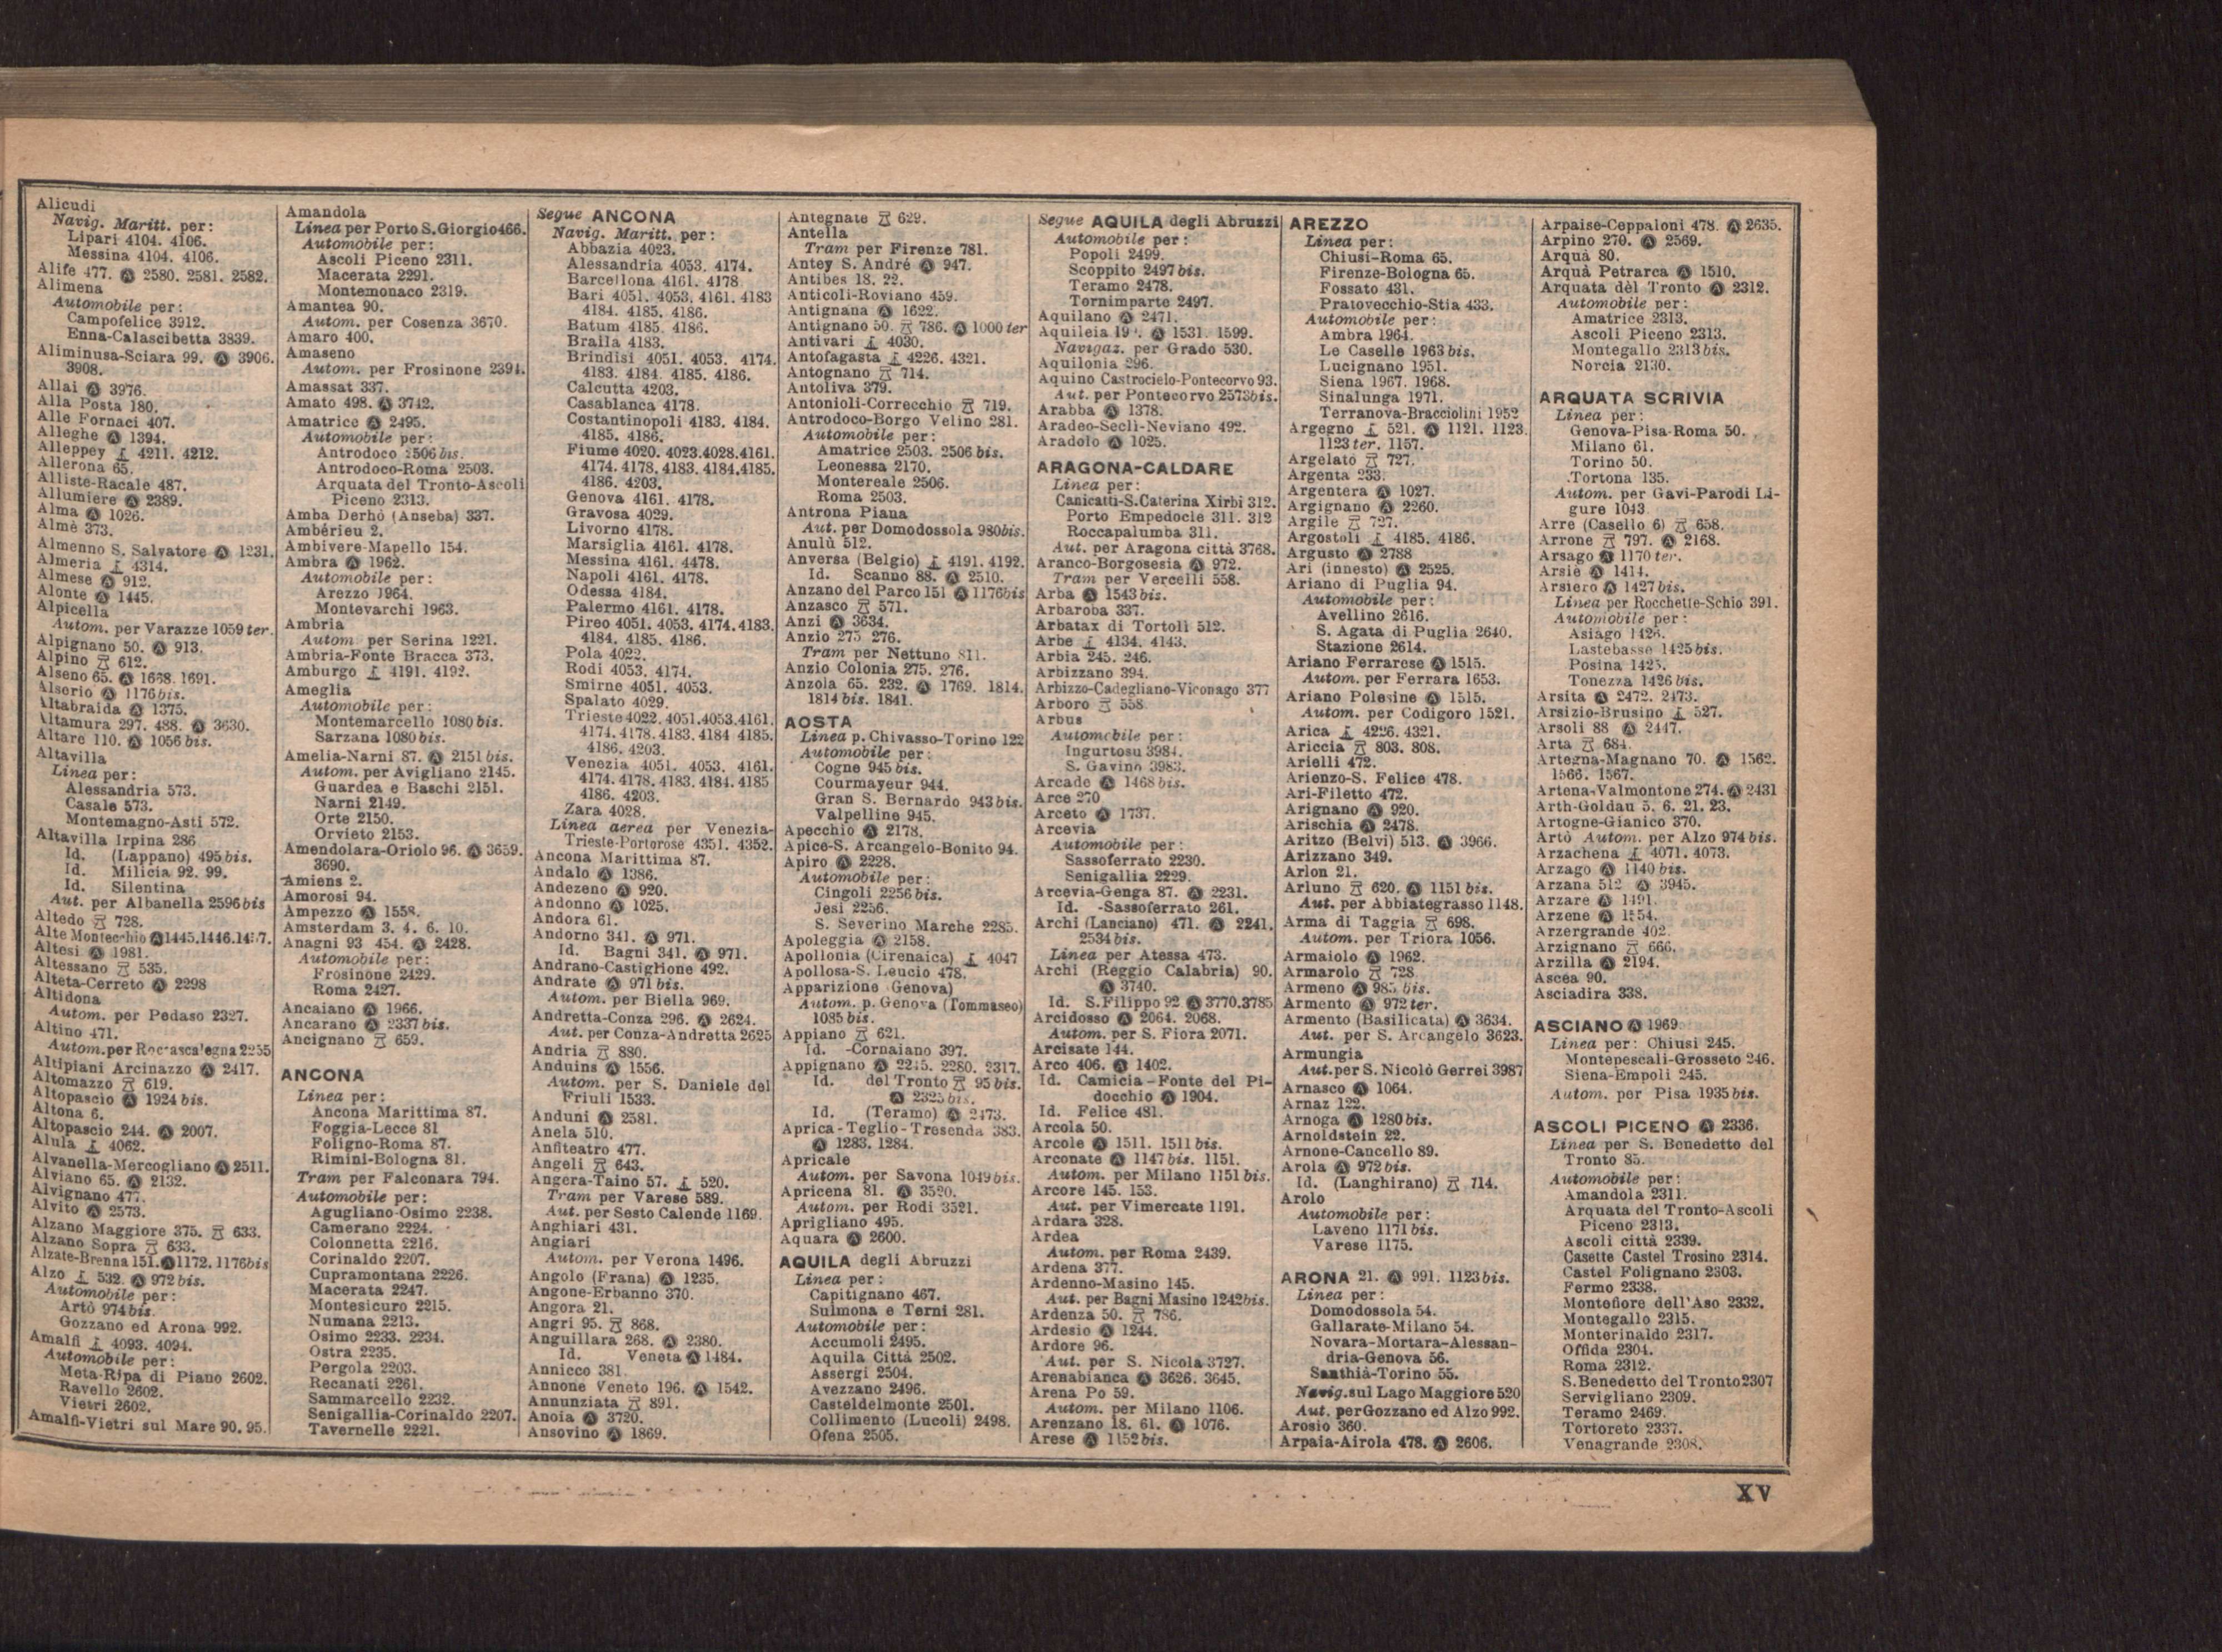 Alicudi
Navig. Maritt. per:
Lipari 4104. 4106.
Messina 4104. 4106.
Alife 477. Ⓐ 2580. 2581. 2582.
Alimena
Automobile per:
Campofelice 3912.
Enna-Calascibetta 3839.
Aliminusa-Sciara 99. Ⓐ 3906.
3908.
Allai Ⓐ 3976.
Alla Posta 180.
Alle Fornaci 407.
Alleghe Ⓐ 1394.
Alleppey 4211. 4212.
Allerona 65.
Alliste-Racale 487.
Allumiere Ⓐ 2389.
Alma Ⓐ 1026.
Almè 373.
Almenno S. Salvatore Ⓐ 1231.
Almeria 4314.
Almese Ⓐ 912.
Alonte Ⓐ 1445.
Alpicella
Autom. per Varazze 1059 ter.
Alpignano 50. Ⓐ 913.
Alpino 612.
Alseno 65. Ⓐ 1668. 1691.
Alserio Ⓐ 1176 bis.
Altabraida Ⓐ 1375.
Altamura 297. 488. Ⓐ 3630.
Altare 110. Ⓐ 1056 bis.
Altavilla
Linea per:
Alessandria 573.
Casale 573.
Montemagno-Asti 572.
Altavilla Irpina 286
Id. (Lappano) 495 bis.
Id. Milicia 92. 99.
Id. Silentina
Aut. per Albanella 2596 bis
Altedo 728.
Alte Montecchio Ⓐ 1445.1446.
Altesi Ⓐ 1981.
Altessano 535.
Alteta-Cerreto Ⓐ 2298
Altidona
Autom. per Pedaso 2327.
Altino 471.
Autom. per Roccascalegna 2255
Altipiani Arcinazzo Ⓐ 2417.
Altomazzo 619.
Altopascio Ⓐ 1924 bis.
Altona 6.
Altopascio 244. Ⓐ 2007.
Alula 4062.
Alvanella-Mercogliano Ⓐ 2511.
Alviano 65. Ⓐ 2132.
Alvignano 477.
Alvito Ⓐ 2573.
Alzano Maggiore 375. 633.
Alzano Sopra 633.
Alzate-Brenna 151. Ⓐ 1172. 1176 bis
Alzo 532. Ⓐ 972 bis.
Automobile per:
Artò 974 bis.
Gozzano ed Arona 992.
Amalfi 4093. 4094.
Automobile per:
Meta-Ripa di Piano 2602.
Ravello 2602.
Vietri 2602.
Amalfi-Vietri sul Mare 90. 95.
Amandola
Linea per Porto S. Giorgio 466.
Automobile per:
Ascoli Piceno 2311.
Macerata 2291.
Montemonaco 2319.
Amantea 90.
Autom. per Cosenza 3670.
Amaro 400.
Amaseno
Autom. per Frosinone 2394.
Amassat 337.
Amato 498. Ⓐ 3742.
Amatrice Ⓐ 2495.
Automobile per:
Antrodoco 2506 bis.
Antrodoco-Roma 2503.
Arquata del Tronto-Ascoli
Piceno 2313.
Amba Derhò (Anseba) 337.
Ambérieu 2.
Ambivere-Mapello 154.
Ambra Ⓐ 1962.
Automobile per:
Arezzo 1964.
Montevarchi 1963.
Ambria
Autom per Serina 1221.
Ambria-Fonte Bracca 373.
Amburgo 4191. 4192.
Ameglia
Automobile per:
Montemarcello 1080 bis.
Sarzana 1080 bis.
Amelia-Narni 87. Ⓐ 2151 bis.
Autom. per Avigliano 2145.
Guardea e Baschi 2151.
Narni 2149.
Orte 2150.
Orvieto 2153.
Amendolara-Oriolo 96. Ⓐ 3659.
3690.
Amiens 2.
Amorosi 94.
Ampezzo Ⓐ 1558.
Amsterdam 3. 4. 6. 10.
Anagni 93 454. Ⓐ 2428.
Automobile per:
Frosinone 2429.
Roma 2427.
Ancaiano Ⓐ 1966.
Ancarano Ⓐ 2337 bis.
Ancignano 659.
ANCONA
Linea per:
Ancona Marittima 87.
Foggia-Lecce 81
Foligno-Roma 87.
Rimini-Bologna 81.
Tram per Falconara 794.
Automobile per:
Agugliano-Osimo 2238.
Camerano 2224.
Colonnetta 2216.
Corinaldo 2207.
Cupramontana 2226.
Macerata 2247.
Montesicuro 2215.
Numana 2213.
Osimo 2233. 2234.
Ostra 2235.
Pergola 2203.
Recanati 2261.
Sammarcello 2232.
Senigallia-Corinaldo 2207.
Tavernelle 2221.
Segue ANCONA
Navig. Maritt. per:
Abbazia 4023.
Alessandria 4053. 4174.
Barcellona 4161. 4178
Bari 4051. 4053. 4161. 4183
4184. 4185. 4186.
Batum 4185. 4186.
Braila 4183.
Brindisi 4051. 4053. 4174.
4183. 4184. 4185. 4186.
Calcutta 4203.
Casablanca 4178.
Costantinopoli 4183. 4184.
4185. 4186.
Fiume 4020. 4023. 4028. 4161.
4174. 4178. 4183. 4184. 4185.
4186. 4203.
Genova 4161. 4178.
Gravosa 4029.
Livorno 4178.
Marsiglia 4161. 4178.
Messina 4161. 4478.
Napoli 4161. 4178.
Odessa 4184.
Palermo 4161. 4178.
Pireo 4051. 4053. 4174. 4183.
4184. 4185. 4186.
Pola 4022.
Rodi 4053. 4174.
Smirne 4051. 4053.
Spalato 4029.
Trieste 4022. 4051. 4053. 4161.
4174. 4178. 4183. 4184 4185.
4186. 4203.
Venezia 4051. 4053. 4161.
4174. 4178. 4183. 4184. 4185
4186. 4203.
Zara 4028.
Linea aerea per Venezia-
Trieste-Portorose 4351. 4352.
Ancona Marittima 87.
Andalo Ⓐ 1386.
Andezeno Ⓐ 920.
Andonno Ⓐ 1025.
Andora 61.
Andorno 341. Ⓐ 971.
Id. Bagni 341. Ⓐ 971.
Andrano-Castiglione 492.
Andrate Ⓐ 971 bis.
Autom. per Biella 969.
Andretta-Conza 296. Ⓐ 2624.
Aut. per Conza-Andretta 2625
Andria 880.
Anduins Ⓐ 1556.
Autom. per S. Daniele del
Friuli 1533.
Anduni Ⓐ 2581.
Anela 510.
Anfiteatro 477.
Angeli 643.
Angera-Taino 57. 520.
Tram per Varese 589.
Aut. per Sesto Calende 1169.
Anghiari 431.
Angiari
Autom. per Verona 1496.
Angolo (Frana) Ⓐ 1235.
Angone-Erbanno 370.
Angora 21.
Angri 95. 868.
Anguillara 268. Ⓐ 2380.
Id. Veneta Ⓐ 1484.
Annicco 381
Annone Veneto 196. Ⓐ 1542.
Annunziata 891.
Anoia Ⓐ 3720.
Ansovino Ⓐ 1869.
Antegnate 629.
Antella
Tram per Firenze 781.
Antey S. André Ⓐ 947.
Antibes 18. 22.
Anticoli-Roviano 459.
Antignana Ⓐ 1622.
Antignano 50. 786. Ⓐ 1000 ter
Antivari 4030.
Antofagasta 4226. 4321.
Antognano 714.
Antoliva 379.
Antonioli-Correcchio 719.
Antrodoco-Borgo Velino 281.
Automobile per:
Amatrice 2503. 2506 bis.
Leonessa 2170.
Montereale 2506.
Roma 2503.
Antrona Piana
Aut. per Domodossola 980 bis.
Anulù 512.
Anversa (Belgio) 4191. 4192.
Id. Scanno 88. Ⓐ 2510.
Anzano del Parco 151 Ⓐ 1176 bis
Anzasco 571.
Anzi Ⓐ 3634.
Anzio 275 276.
Tram per Nettuno 811.
Anzio Colonia 275. 276.
Anzola 65. 232. Ⓐ 1769. 1814.
1814 bis. 1841.
AOSTA
Linea p. Chivasso-Torino 122
Automobile per:
Cogne 945 bis.
Courmayeur 944.
Gran S. Bernardo 943 bis.
Valpelline 945.
Apecchio Ⓐ 2178.
Apice-S. Arcangelo-Bonito 94.
Apiro Ⓐ 2228.
Automobile per:
Cingoli 2256 bis.
Jesi 2256.
S. Severino Marche 2285.
Apoleggia Ⓐ 2158.
Apollonia (Cirenaica) 4047
Apollosa-S. Leucio 478.
Apparizione Genova)
Autom. p. Genova (Tommaseo)
1085 bis.
Appiano 621.
Id. -Cornaiano 397.
Appignano Ⓐ 2245. 2280. 2317.
Id. del Tronto 95 bis.
Ⓐ 2325 bis.
Id. (Teramo) Ⓐ 2473.
Aprica-Teglio-Tresenda 383.
Ⓐ 1283. 1284.
Apricale
Autom. per Savona 1049 bis.
Apricena 81. Ⓐ 3520.
Autom. per Rodi 3521.
Aprigliano 495.
Aquara Ⓐ 2600.
AQUILA degli Abruzzi
Linea per:
Capitignano 467.
Sulmona e Terni 281.
Automobile per:
Accumoli 2495.
Aquila Città 2502.
Assergi 2504.
Avezzano 2496.
Casteldelmonte 2501.
Collimento (Lucoli) 2498.
Ofena 2505.
Segue AQUILA degli Abruzzi
Automobile per:
Popoli 2499.
Scoppito 2497 bis.
Teramo 2478.
Tornimparte 2497.
Aquilano Ⓐ 2471.
Aquileia Ⓐ 1531. 1599.
Navigaz. per Grado 530.
Aquilonia 296.
Aquino Castrocielo-Pontecorvo 93.
Aut. per Pontecorvo 2573 bis.
Arabba Ⓐ 1378.
Aradeo-Seclì-Neviano 492.
Aradolo Ⓐ 1025.
ARAGONA-CALDARE
Linea per:
Canicattì-S. Caterina Xirbi 312.
Porto Empedocle 311. 312
Roccapalumba 311.
Aut. per Aragona città 3768.
Aranco-Borgosesia Ⓐ 972.
Tram per Vercelli 558.
Arba Ⓐ 1543 bis.
Arbaroba 337.
Arbatax di Tortolì 512.
Arbe 4134. 4143.
Arbia 245. 246.
Arbizzano 394.
Arbizzo-Cadegliano-Viconago 377
Arboro 558
Arbus
Automobile per:
Ingurtosu 3984.
S. Gavino 3983.
Arcade Ⓐ 1468 bis.
Arce 270
Arceto Ⓐ 1737.
Arcevia
Automobile per:
Sassoferrato 2230.
Senigallia 2229.
Arcevia-Genga 87. Ⓐ 2231.
Id. -Sassoferrato 261.
Archi (Lanciano) 471. Ⓐ 2241.
2534 bis.
Linea per Atessa 473.
Archi (Reggio Calabria) 90.
Ⓐ 3740.
Id. S. Filippo 92 Ⓐ 3770. 3785
Arcidosso Ⓐ 2064. 2068.
Autom. per S. Fiora 2071.
Arcisate 144.
Arco 406. Ⓐ 1402.
Id. Camicia-Fonte del Pi-
docchio Ⓐ 1904.
Id. Felice 481.
Arcola 50.
Arcole Ⓐ 1511. 1511 bis.
Arconate Ⓐ 1147 bis. 1151.
Autom. per Milano 1151 bis.
Arcore 145. 153.
Aut. per Vimercate 1191.
Ardara 328.
Ardea
Autom. per Roma 2439.
Ardena 377.
Ardenno-Masino 145.
Aut. per Bagni Masino 1242 bis.
Ardenza 50. 786.
Ardesio Ⓐ 1244.
Ardore 96.
Aut. per S. Nicola 3727.
Arenabianca Ⓐ 3626. 3645.
Arena Po 59.
Autom. per Milano 1106.
Arenzano 18. 61. Ⓐ 1076.
Arese Ⓐ 1152 bis.
AREZZO
Linea per:
Chiusi-Roma 65.
Firenze-Bologna 65.
Fossato 431.
Pratovecchio-Stia 433.
Automobile per:
Ambra 1964.
Le Caselle 1963 bis.
Lucignano 1951.
Siena 1967. 1968.
Sinalunga 1971.
Terranova-Bracciolini 1952
Argegno 521. Ⓐ 1121. 1123.
1123 ter. 1157.
Argelato 727.
Argenta 233.
Argentera Ⓐ 1027.
Argignano Ⓐ 2260.
Argile 727.
Argostoli 4185. 4186.
Argusto Ⓐ 2788
Ari (innesto) Ⓐ 2525.
Ariano di Puglia 94.
Automobile per:
Avellino 2616.
S. Agata di Puglia 2640.
Stazione 2614.
Ariano Ferrarese Ⓐ 1515.
Autom. per Ferrara 1653.
Ariano Polesine Ⓐ 1515.
Autom. per Codigoro 1521.
Arica 4226. 4321.
Ariccia 803. 808.
Arielli 472.
Arienzo-S. Felice 478.
Ari-Filetto 472.
Arignano Ⓐ 920.
Arischia Ⓐ 2478.
Aritzo (Belvi) 513. Ⓐ 3966.
Arizzano 349.
Arlon 21.
Arluno 620. Ⓐ 1151 bis.
Aut. per Abbiategrasso 1148.
Arma di Taggia 698.
Autom. per Triora 1056.
Armaiolo Ⓐ 1962.
Armarolo 728.
Armeno Ⓐ 985 bis.
Armento Ⓐ 972 ter.
Armento (Basilicata) Ⓐ 3634.
Aut. per S. Arcangelo 3623.
Armungia
Aut. per S. Nicolò Gerrei 3987
Arnasco Ⓐ 1064.
Arnaz 122.
Arnoga Ⓐ 1280 bis.
Arnoldstein 22.
Arnone-Cancello 89.
Arola Ⓐ 972 bis.
Id. (Langhirano) 714.
Arolo
Automobile per:
Laveno 1171 bis.
Varese 1175.
ARONA 21. Ⓐ 991. 1123 bis.
Linea per:
Domodossola 54.
Gallarate-Milano 54.
Novara-Mortara-Alessan-
dria-Genova 56.
Santhià-Torino 55.
Navig. sul Lago Maggiore 520
Aut. per Gozzano ed Alzo 992.
Arosio 360.
Arpaia-Airola 478. Ⓐ 2606.
Arpaise-Ceppaloni 478. Ⓐ 2635.
Arpino 270. Ⓐ 2569.
Arquà 80.
Arquà Petrarca Ⓐ 1510.
Arquata dèl Tronto Ⓐ 2312.
Automobile per:
Amatrice 2313.
Ascoli Piceno 2313.
Montegallo 2313 bis.
Norcia 2130.
ARQUATA SCRIVIA
Linea per:
Genova-Pisa-Roma 50.
Milano 61.
Torino 50.
Tortona 135.
Autom. per Gavi-Parodi Li-
gure 1043
Arre (Casello 6) 658.
Arrone 797. Ⓐ 2168.
Arsago Ⓐ 1170 ter.
Arsiè Ⓐ 1414.
Arsiero Ⓐ 1427 bis.
Linea per Rocchette-Schio 391.
Automobile per:
Asiago 1426.
Lastebasse 1425 bis.
Posina 1425.
Tonezza 1426 bis.
Arsita Ⓐ 2472. 2473.
Arsizio-Brusino 527.
Arsoli 88 Ⓐ 2447.
Arta 684.
Artegna-Magnano 70. Ⓐ 1562.
1566. 1567.
Artena-Valmontone 274. Ⓐ 2431
Arth-Goldau 5. 6. 21. 23.
Artogne-Gianico 370.
Artò Autom. per Alzo 974 bis.
Arzachena 4071. 4073.
Arzago Ⓐ 1140 bis.
Arzana 512 Ⓐ 3945.
Arzare Ⓐ 1491.
Arzene Ⓐ 1554.
Arzergrande 402.
Arzignano 666.
Arzilla Ⓐ 2194.
Ascea 90.
Asciadira 338.
ASCIANO Ⓐ 1969.
Linea per: Chiusi 245.
Montepescali-Grosseto 246.
Siena-Empoli 245.
Autom. per Pisa 1935 bis.
ASCOLI PICENO Ⓐ 2336.
Linea per S. Benedetto del
Tronto 85.
Automobile per:
Amandola 2311.
Arquata del Tronto-Ascoli
Piceno 2313.
Ascoli città 2339.
Casette Castel Trosino 2314.
Castel Folignano 2303.
Fermo 2338.
Montefiore dell'Aso 2332.
Montegallo 2315.
Monterinaldo 2317.
Offida 2304.
Roma 2312.
S. Benedetto del Tronto 2307
Servigliano 2309.
Teramo 2469.
Tortoreto 2337.
Venagrande 2308.
XV